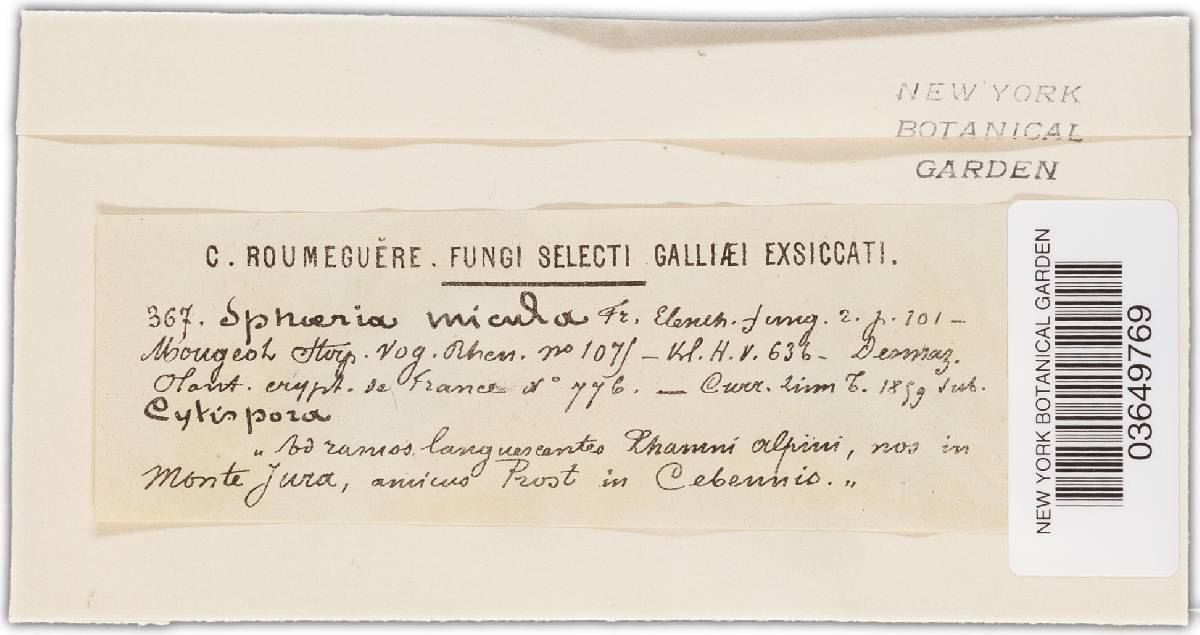 NEW YORK
BOTANICAL
GARDEN
C. ROUMEGUĚRE. FUNGI SELECTI GALLIÆI EXSICCATI.
367. Sphæria micula Fr. Elench. fung. 2. p. 101 -
Mougeot Stirp. Vog. Rhen. no 1075 - Kl. H. V. 636 - Desmaz.
Plant. crypt. de France No 776. - Curr. Linn T. 1859 sub.
Cytispora
„ Ad ramos languescentes Rhamni alpini, nos in
Monte Jura, amicus Prost in Cebennis. „
NEW YORK BOTANICAL GARDEN
03649769